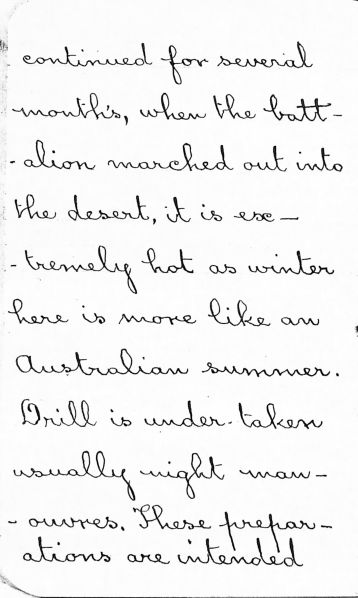 continued for several
month's, when the batt-
-alion marched out into
the desert, it is ex-
-tremely hot as winter
here is more like an
Australian summer.
Drill is under-taken
usually night man-
-ouvres. These prepar-
ations are intended